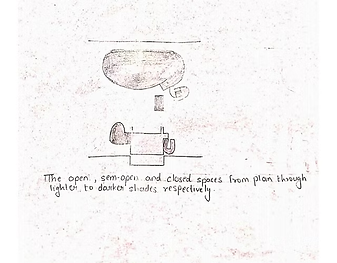 The open , semi-open and closed spaces from plan through
lighter to darker shades respectively.